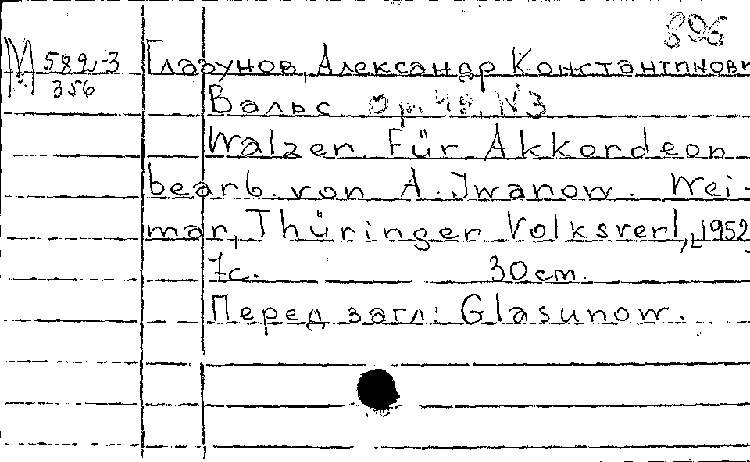 896
М 589-3 Глазунов, Александр Константинови
356
Вальс op. 42, N3
Walzen Für Akkordeon
bearb. von A. Iwanow. Wei-
mar, Thüringer Volksverl, 1952,
7с. 30 cm.
Перед загл: Glasunow.